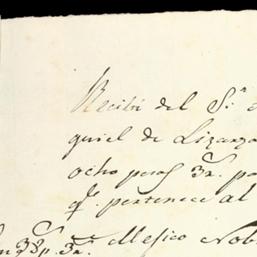 Recibi del S.r
quiel de Lizarza
ocho pesos 3r. pa
q.e pertenece al
3r. Mexico Nob